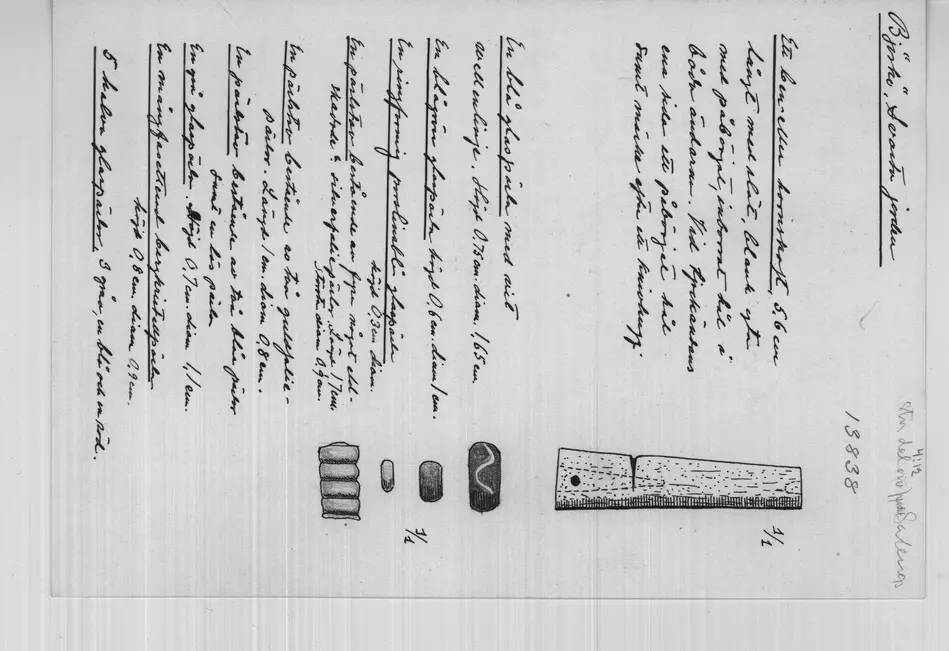 Björkö, "Svarta jorden
13838
Ett ben- eller hornskaft, 5,6 cm
långt med slät, blank yta
med påbörjat, inborrat hål i
båda ändarna. Vid tjockändens
ena sida ett påbörjat hål
samt märke efter ett knivhugg.
1/1
En blå glaspärla med vit
våglinje. Höjd 0,75 cm. diam. 1,65 cm.
En blågrön glaspärla höjd 0,6 cm. diam 1 cm.
1/1
En ringformig glaspärla
höjd 0,3 cm diam.
En pärlstav bestående av fyra något eld-
skadade silverfoliepärlor. Längd 1,7 cm.
Största diam 0,9 cm.
En pärlstav bestående av två guldfolie-
pärlor. Längd 1 cm. diam 0,8 cm.
En pärlstav bestående av två blå pärlor
samt en lös pärla
En grå glaspärla. Höjd 0,7 cm. diam 1,1 cm.
En mångfacetterad bergkristallpärla
höjd 0,8 cm. diam 0,9 cm.
5 halva glaspärlor, 3 grön, en blå och en röd.